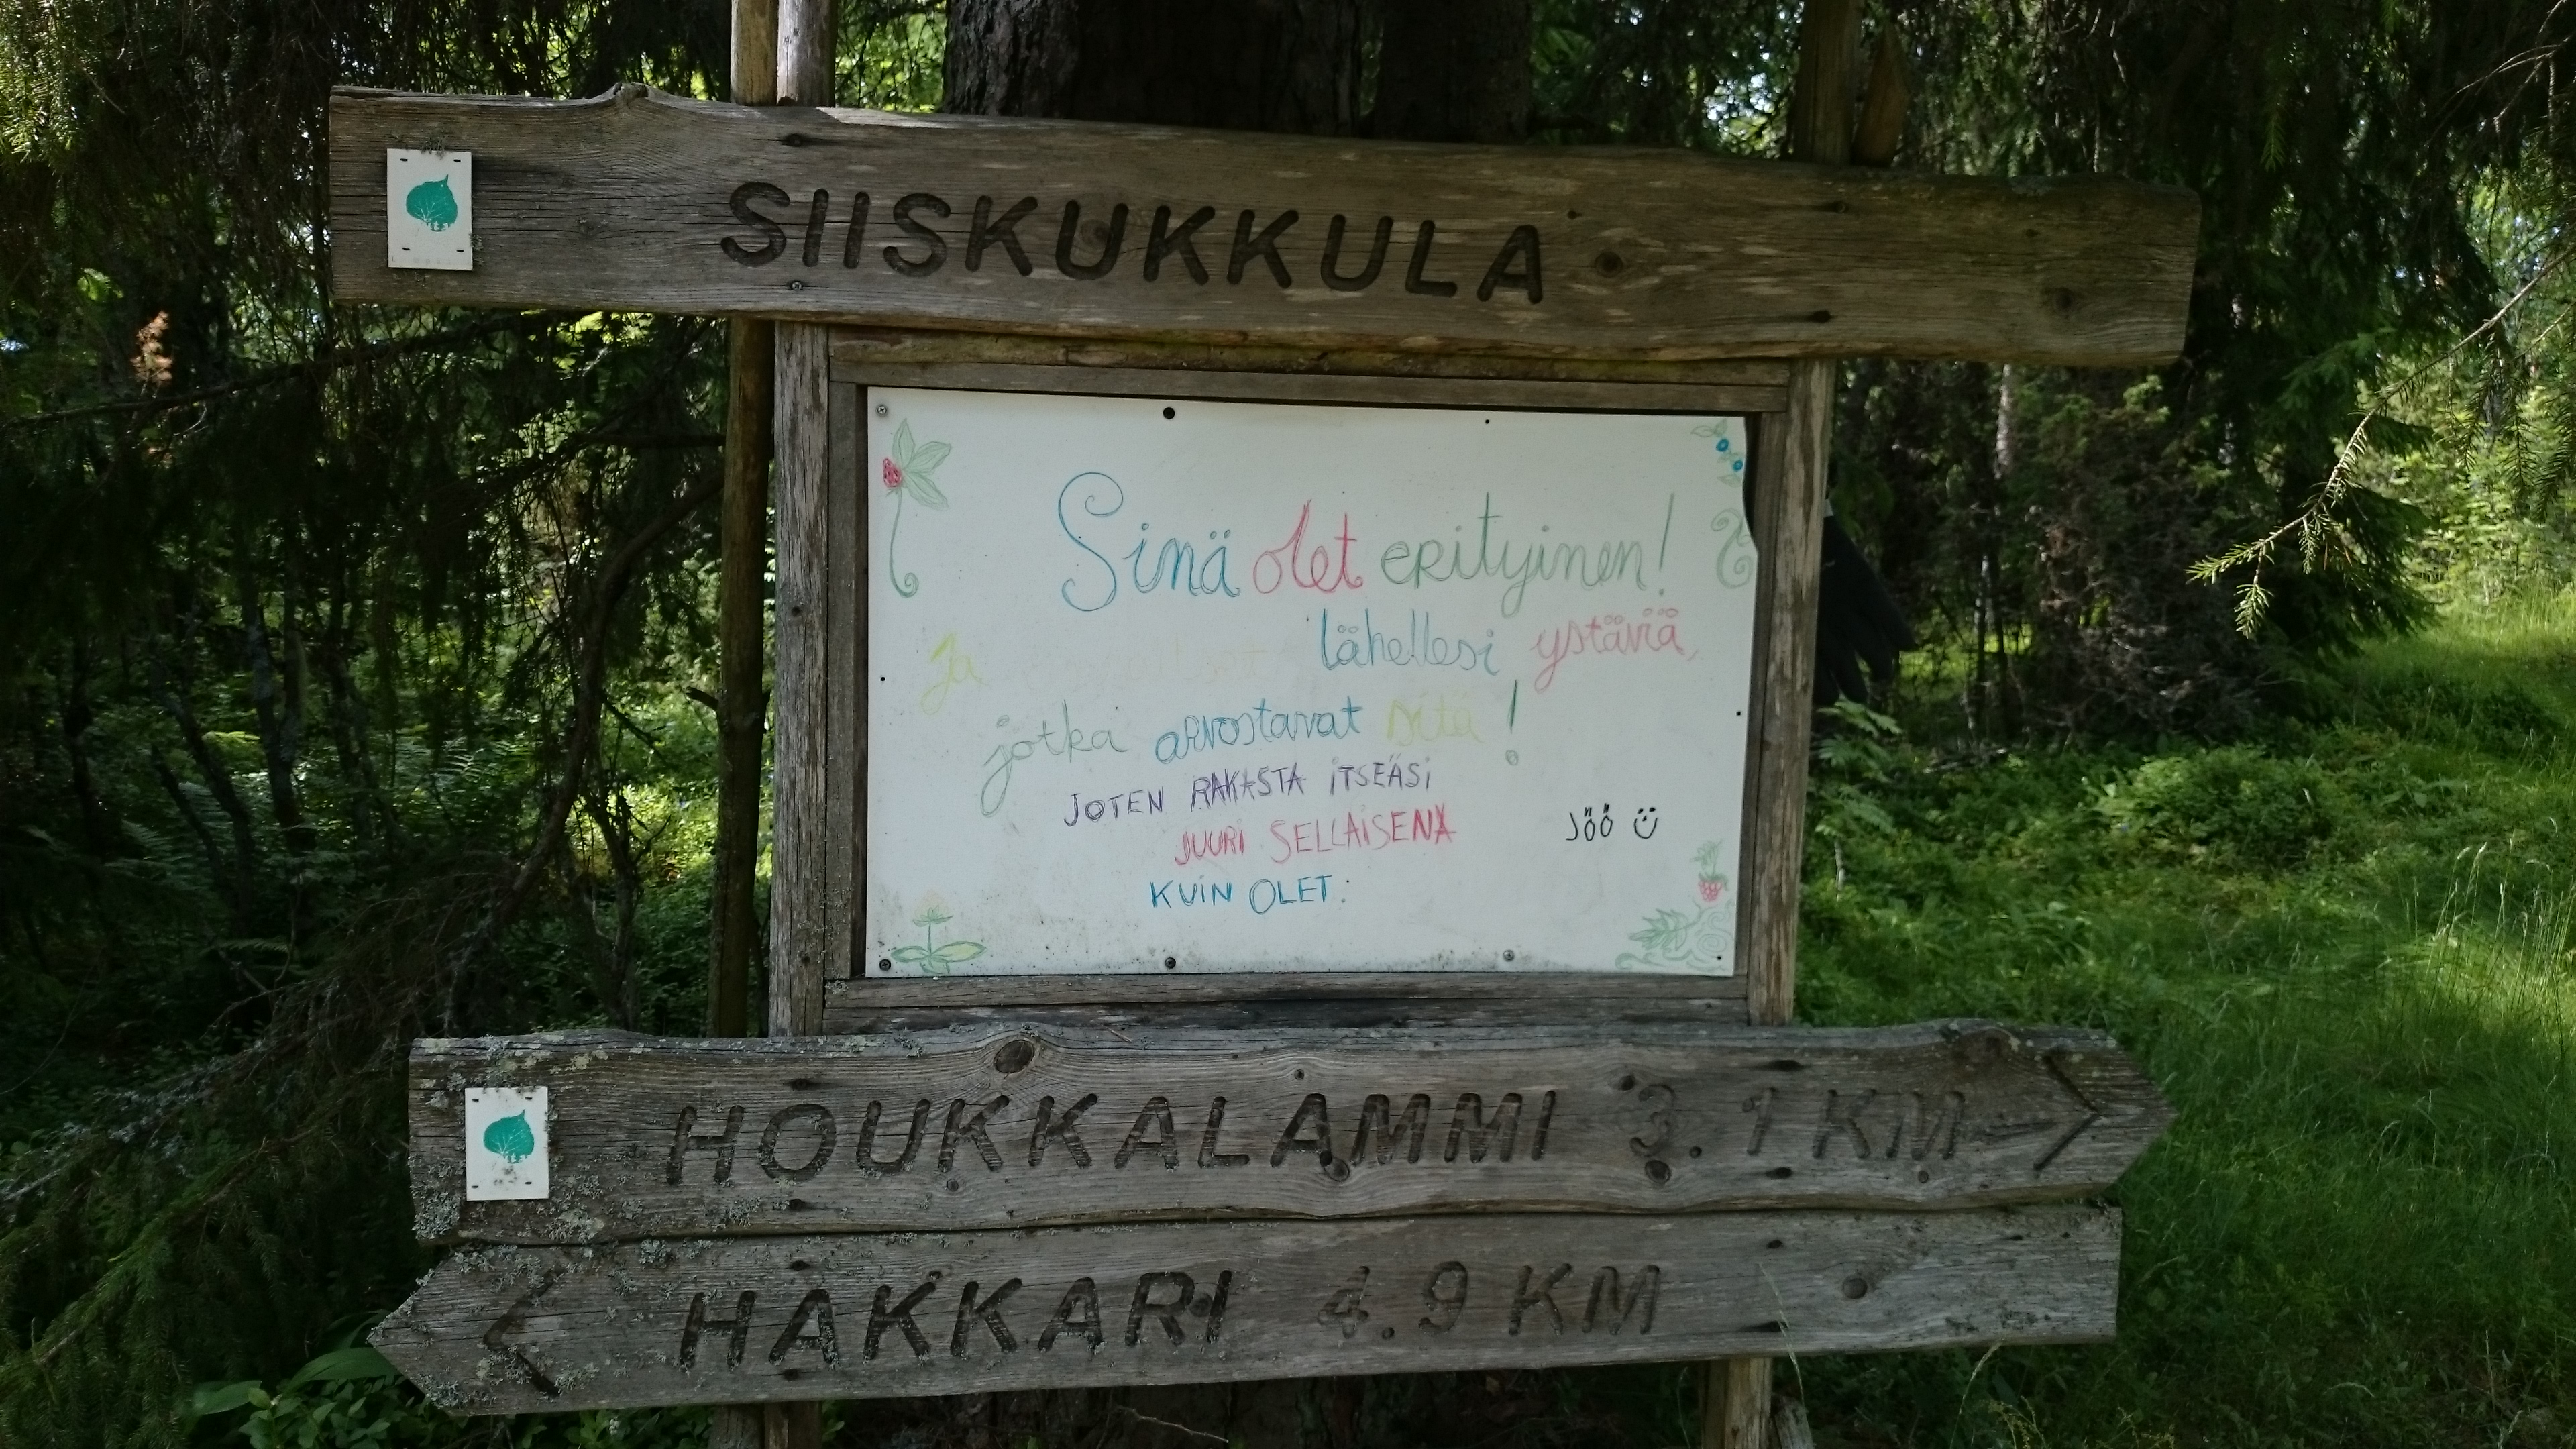 SIISKUKKULA
Sinä olet erityinen!
Ja lähellesi ystäviä,
jotka arvostavat sitä!
JOTEN RAKASTA iTSEÄSi
JUURi SELLAiSENA
KUiN OLET.
JÖÖ
HOUKKALAMMI 3.1 KM
HAKKARI 4.9 KM